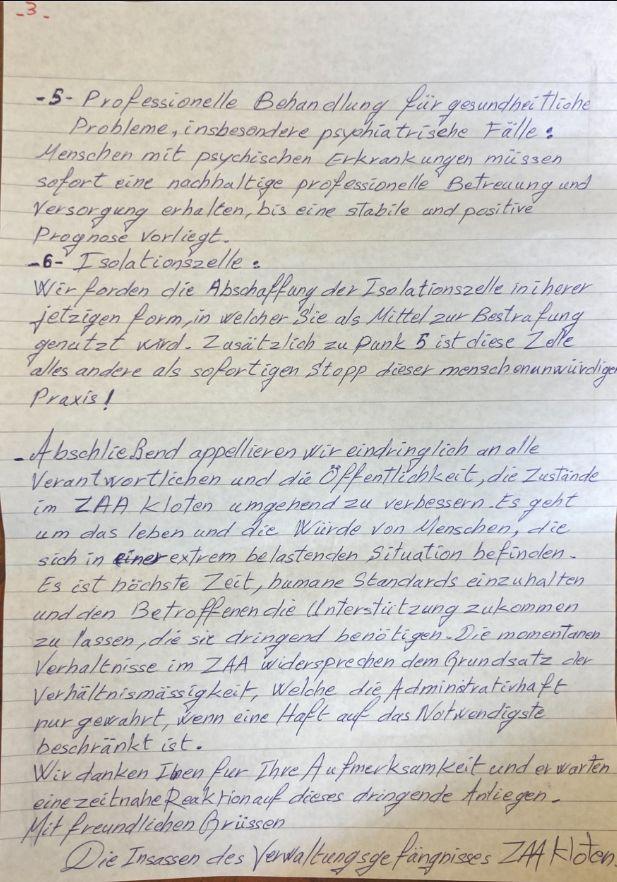 -3-
-5- Professionelle Behandlung für gesundheitliche
Probleme, insbesondere psychiatrische Fälle:
Menschen mit psychischen Erkrankungen müssen
sofort eine nachhaltige professionelle Betreuung und
Versorgung erhalten, bis eine stabile und positive
Prognose vorliegt.
-6- Isolationszelle:
Wir forden die Abschaffung der Isolationszelle in iherer
jetzigen form, in welcher Sie als Mittel zur Bestrafung
genutzt wird. Zusätzlich zu Punk 5 ist diese Zelle
alles andere als sofortigen Stopp dieser menschenunwürdigen
Praxis!
- Abschließend appellieren wir eindringlich an alle
Verantwortlichen und die Öffentlichkeit, die Zustände
im ZAA Kloten umgehend zu verbessern. Es geht
um das leben und die Würde von Menschen, die
sich in einer extrem belastenden Situation befinden.
Es ist höchste Zeit, humane Standards einzuhalten
und den Betroffenen die Unterstützung zukommen
zu lassen, die sie dringend benötigen. Die momentanen
Verhaltnisse im ZAA widersprechen dem Grundsatz der
Verhältnismässigkeit, Welche die Administrativhaft
nur gewahrt, wenn eine Haft auf das Notwendigste
beschränkt ist.
Wir danken Ihen fur Ihre Aufmerksamkeit und erwarten
eine zeitnahe Reaktion auf dieses dringende Anliegen.
Mit freundlichen Grüssen
Die Insassen des Verwaltungsgefängnisses ZAA Kloten.